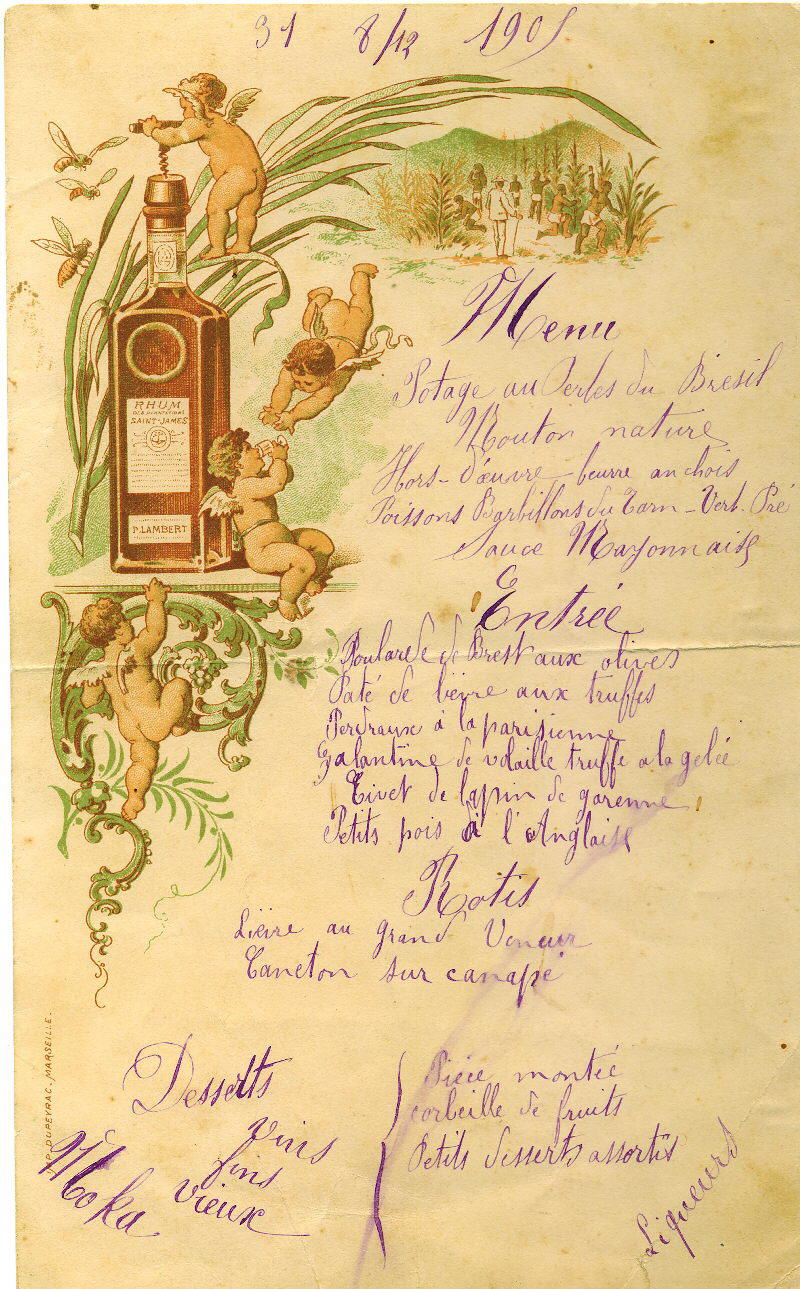 31 8/12 1905
RHUM
DES PLANTATIONS
SAINT-JAMES
P. LAMBERT
Menu
Potage au Perles du Brésil
Mouton nature
Hors-d'œuvre beurre anchois
Poissons Barbillons du Tarn - Vert. Pré
Sauce Mayonnaise
Entrée
Poularde de Brest aux olives
Paté de lièvre aux truffes
Perdraux à la parisienne
Galantine de volaille truffe a la gelée
Civet de lapin de garenne
Petits pois à l'Anglaise
Rotis
Lièvre au grand Veneur
Caneton sur canapé
Desserts
Pièce montée
corbeille de fruits
Petits desserts assortis
Vins
fins
vieux
Moka
Liqueurs
P. DUPEYRAC. MARSEILLE.